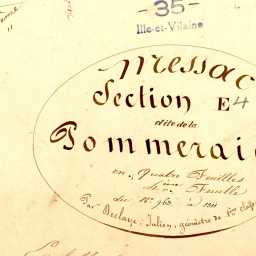 - 35 -
Ille-et-Vilaine
Messac
Section E4
dite de la
Pommerai
en quatre Feuilles
4eme Feuille
du N° 963 à
Par Julien, géomètre de 1re